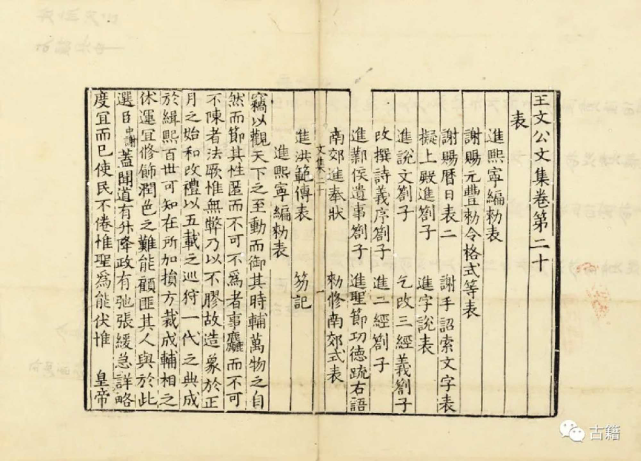 王文公文集卷第二十
表
進熙寧編敕表
謝賜元豐勑令格式等表
謝賜曆日表二 謝手詔索文字表
擬上殿進劄子 進字說表
進說文劄子 乞改三經義劄子
改撰詩義序劄子 進二經劄子
進鄴侯遺事劄子 進聖節功德疏右語
南郊進奉狀 勑修南郊式表
進洪範傳表 笏記
進熙寧編勑表
竊以觀天下之至動而御其時輔萬物之自
然而節其性匿而不可不爲者事麤而不可
不陳者法歟惟無弊乃以不膠故造象於正
月之始和改禮以五載之巡狩一代之典成
於緝熙百世可知在所加損方裁成輔相之
休運宜修飾潤色之難能顧匪其人與於此
選臣中謝蓋聞道有升降政有弛張緩急詳略
度宜而已使民不倦惟聖爲能伏惟 皇帝
古籍